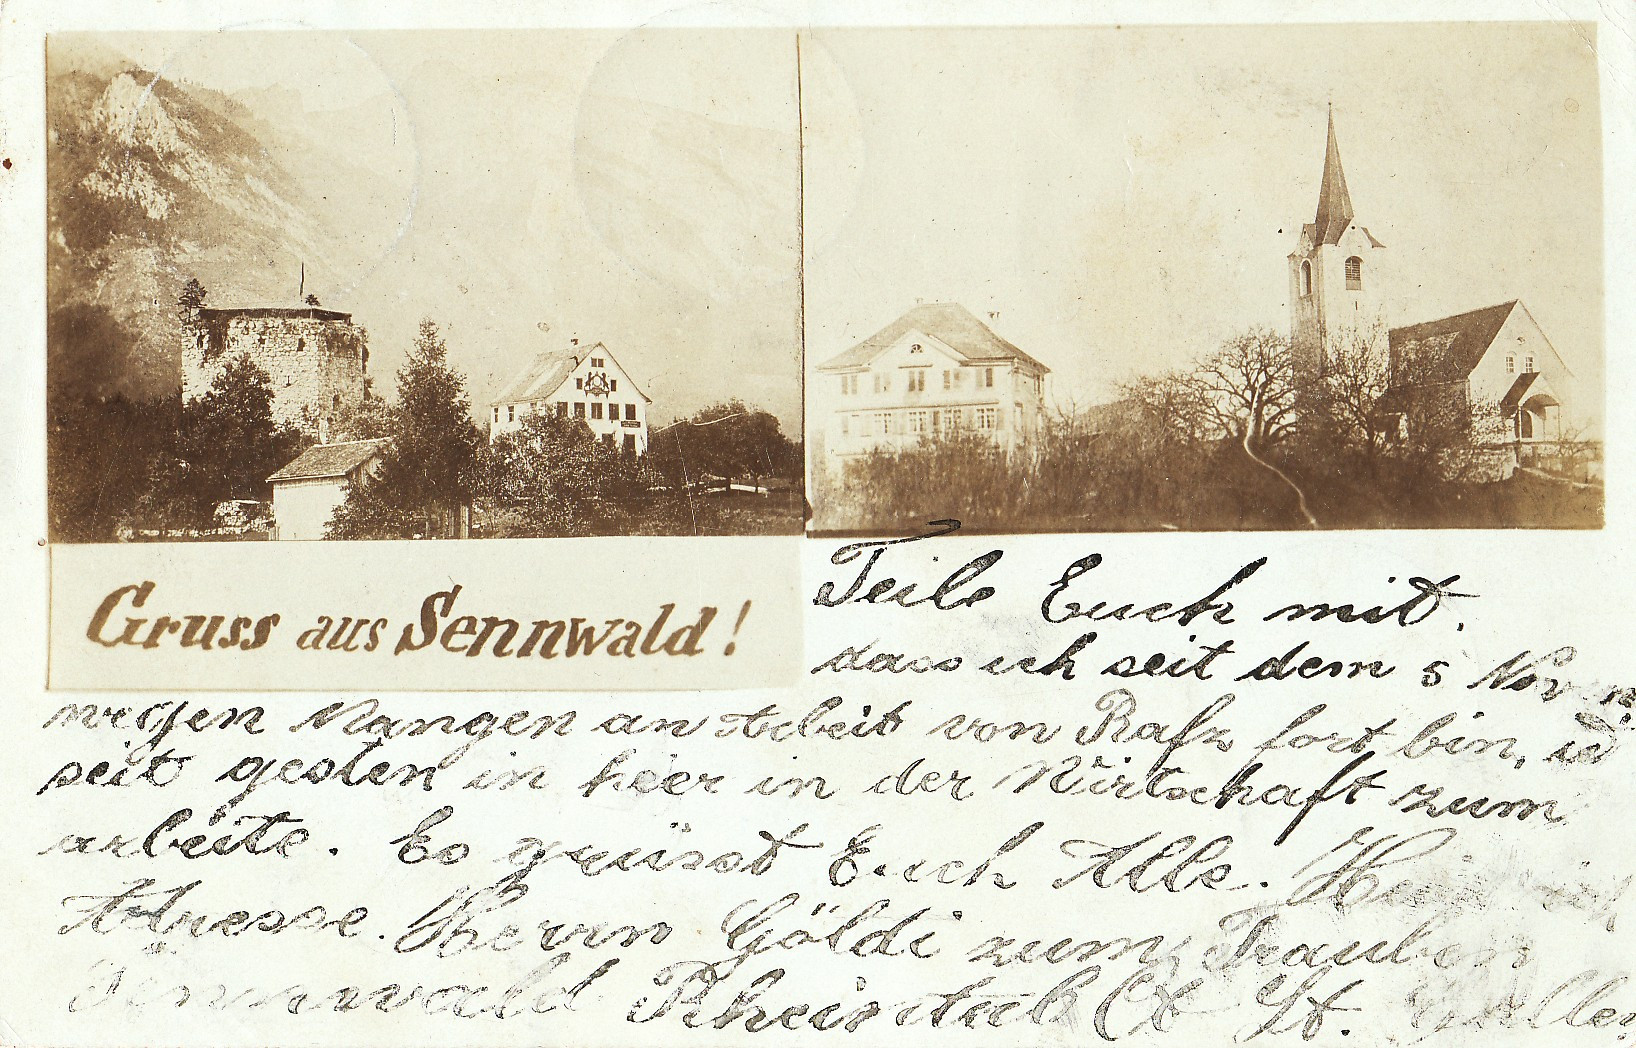 Gruss aus Sennwald!
Teile Euch mit,
dass ich seit dem 5 Nov
wegen Mangen an Arbeit von Rafz fort bin,
seit gesten in hier in der Wirtschaft zum
arbeite. Es grüsst Euch Alle. Heinrich
Adresse. Herrn Göldi zum Trauben
Sennwald Rheintahl Ct St. Gallen